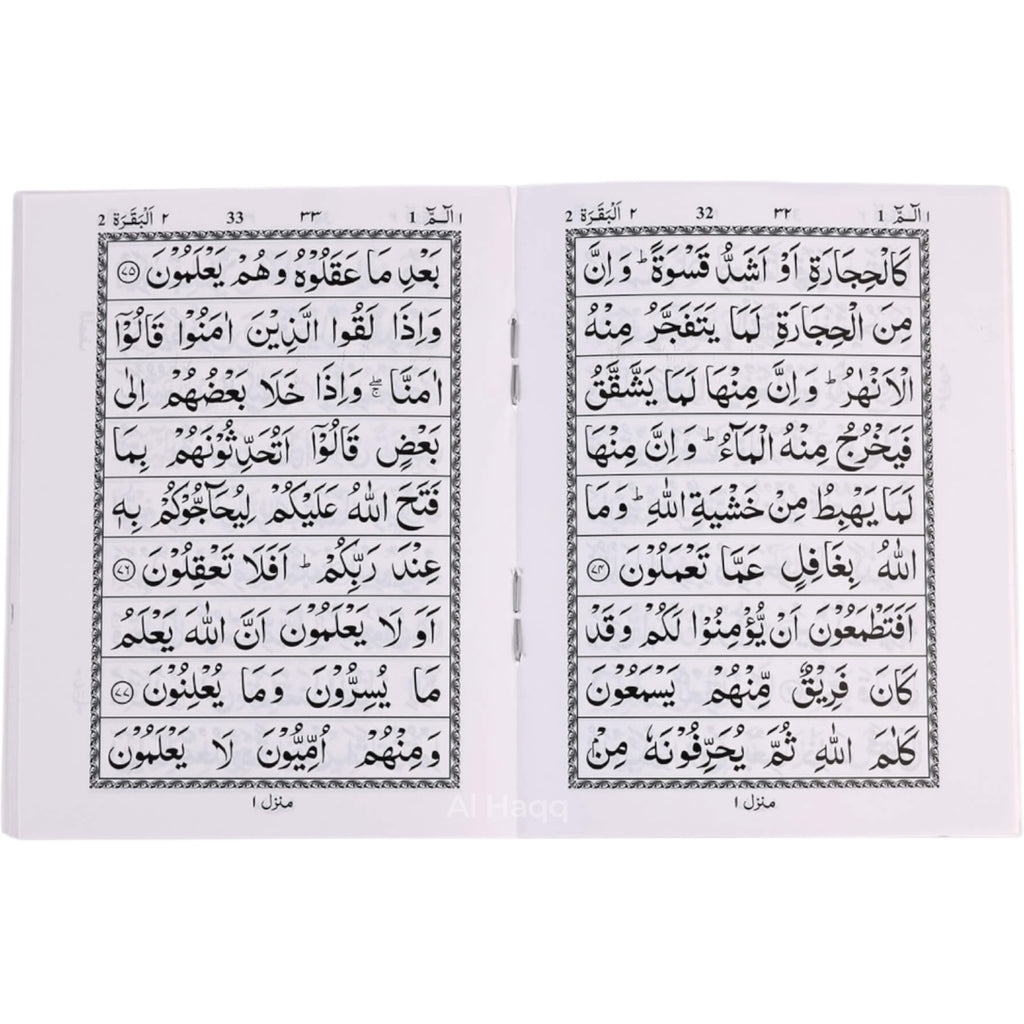 ١ الٓـمّٓ 1 ٣٢ 32 ٢ اَلْبَقَرَة 2
كَالْحِجَارَةِ اَوْ اَشَدُّ قَسْوَةً ؕ وَ اِنَّ
مِنَ الْحِجَارَةِ لَمَا يَتَفَجَّرُ مِنْهُ
الْاَنْهٰرُ ؕ وَ اِنَّ مِنْهَا لَمَا يَشَّقَّقُ
فَيَخْرُجُ مِنْهُ الْمَآءُ ؕ وَ اِنَّ مِنْهَا
لَمَا يَهْبِطُ مِنْ خَشْيَةِ اللّٰهِ ؕ وَ مَا
اللّٰهُ بِغَافِلٍ عَمَّا تَعْمَلُوْنَ ﴿۷۴﴾
اَفَتَطْمَعُوْنَ اَنْ يُّؤْمِنُوْا لَكُمْ وَ قَدْ
كَانَ فَرِيْقٌ مِّنْهُمْ يَسْمَعُوْنَ
كَلٰمَ اللّٰهِ ثُمَّ يُحَرِّفُوْنَهٗ مِنْۢ
منزل ١
١ الٓـمّٓ 1 ٣٣ 33 ٢ اَلْبَقَرَة 2
بَعْدِ مَا عَقَلُوْهُ وَ هُمْ يَعْلَمُوْنَ ﴿۷۵﴾
وَ اِذَا لَقُوا الَّذِيْنَ اٰمَنُوْا قَالُوْۤا
اٰمَنَّا ۖۚ وَ اِذَا خَلَا بَعْضُهُمْ اِلٰى
بَعْضٍ قَالُوْۤا اَتُحَدِّثُوْنَهُمْ بِمَا
فَتَحَ اللّٰهُ عَلَيْكُمْ لِيُحَآجُّوْكُمْ بِهٖ
عِنْدَ رَبِّكُمْ ؕ اَفَلَا تَعْقِلُوْنَ ﴿۷۶﴾
اَوَ لَا يَعْلَمُوْنَ اَنَّ اللّٰهَ يَعْلَمُ
مَا يُسِرُّوْنَ وَ مَا يُعْلِنُوْنَ ﴿۷۷﴾
وَ مِنْهُمْ اُمِّيُّوْنَ لَا يَعْلَمُوْنَ
منزل ١
Al Haqq